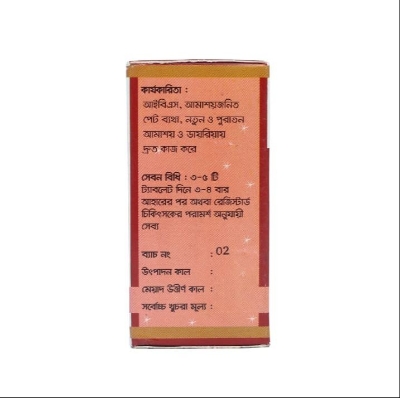 কার্যকারিতা :
আইবিএস, আমাশয়জনিত
পেট ব্যথা, নতুন ও পুরাতন
আমাশয় ও ডায়রিয়ায়
দ্রুত কাজ করে
সেবন বিধি : ৩-৫ টি
ট্যাবলেট দিনে ৩-৪ বার
আহারের পর অথবা রেজিস্টার্ড
চিকিৎসকের পরামর্শ অনুযায়ী
সেব্য
ব্যাচ নং : 02
উৎপাদন কাল :
মেয়াদ উত্তীর্ণ কাল :
সর্বোচ্চ খুচরা মূল্য :